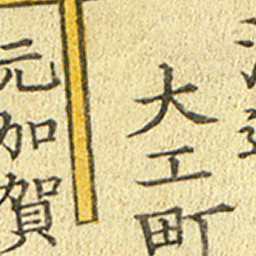 大工町
元加賀